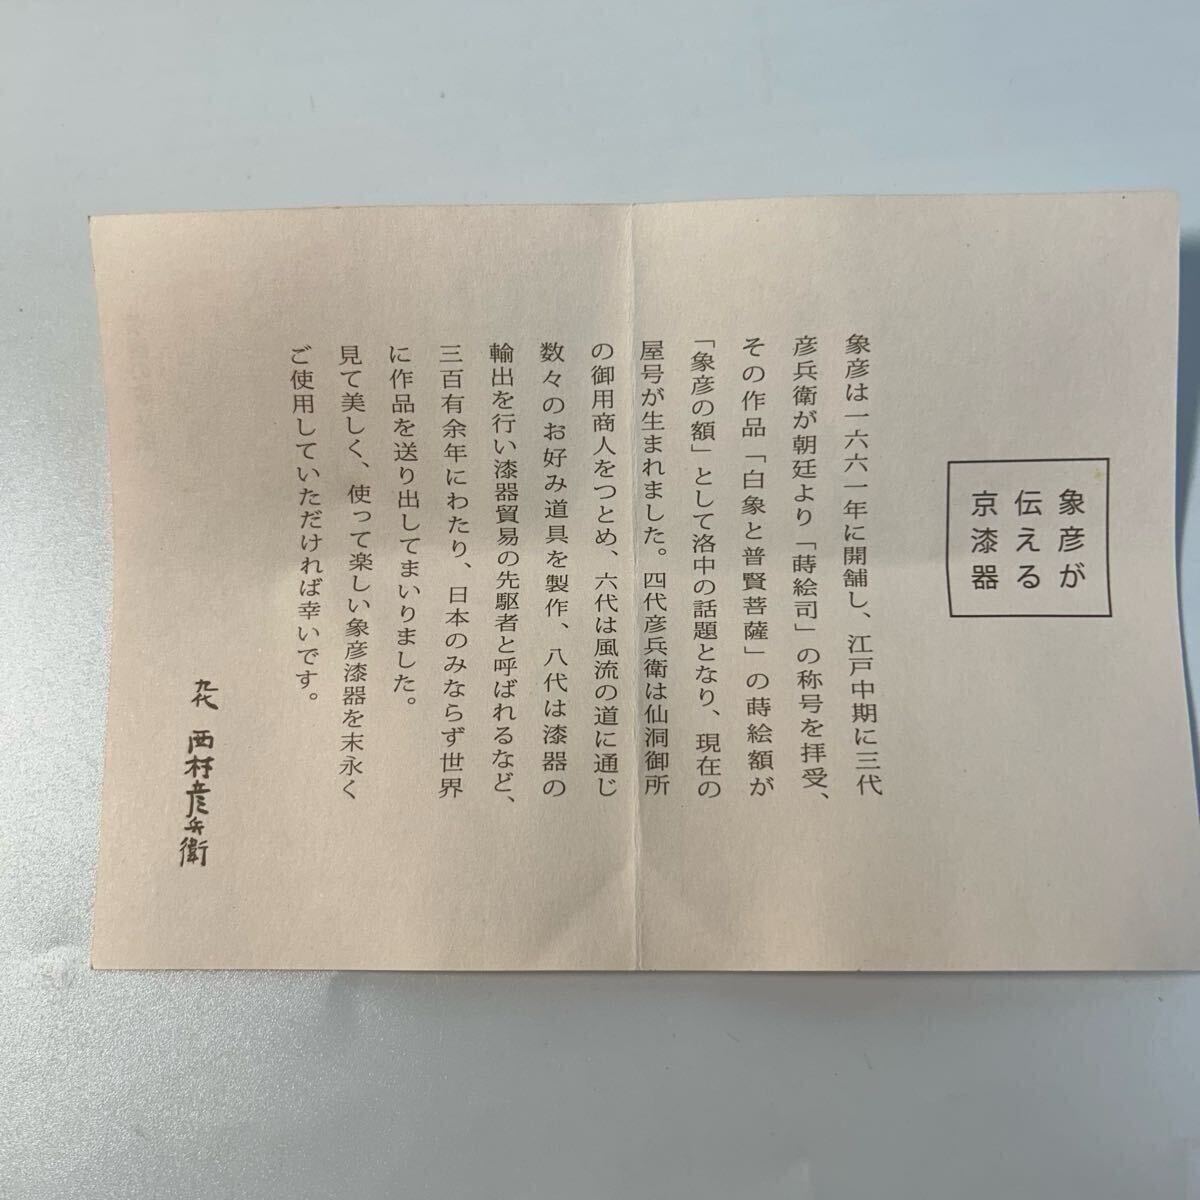 象彦が
伝える
京漆器
象彦は一六六一年に開舗し、江戸中期に三代
彦兵衛が朝廷より「蒔絵司」の称号を拝受、
その作品「白象と普賢菩薩」の蒔絵額が
「象彦の額」として洛中の話題となり、現在の
屋号が生まれました。四代彦兵衛は仙洞御所
の御用商人をつとめ、六代は風流の道に通じ
数々のお好み道具を製作、八代は漆器の
輸出を行い漆器貿易の先駆者と呼ばれるなど、
三百有余年にわたり、日本のみならず世界
に作品を送り出してまいりました。
見て美しく、使って楽しい象彦漆器を末永く
ご使用していただければ幸いです。
九代 西村彦兵衛